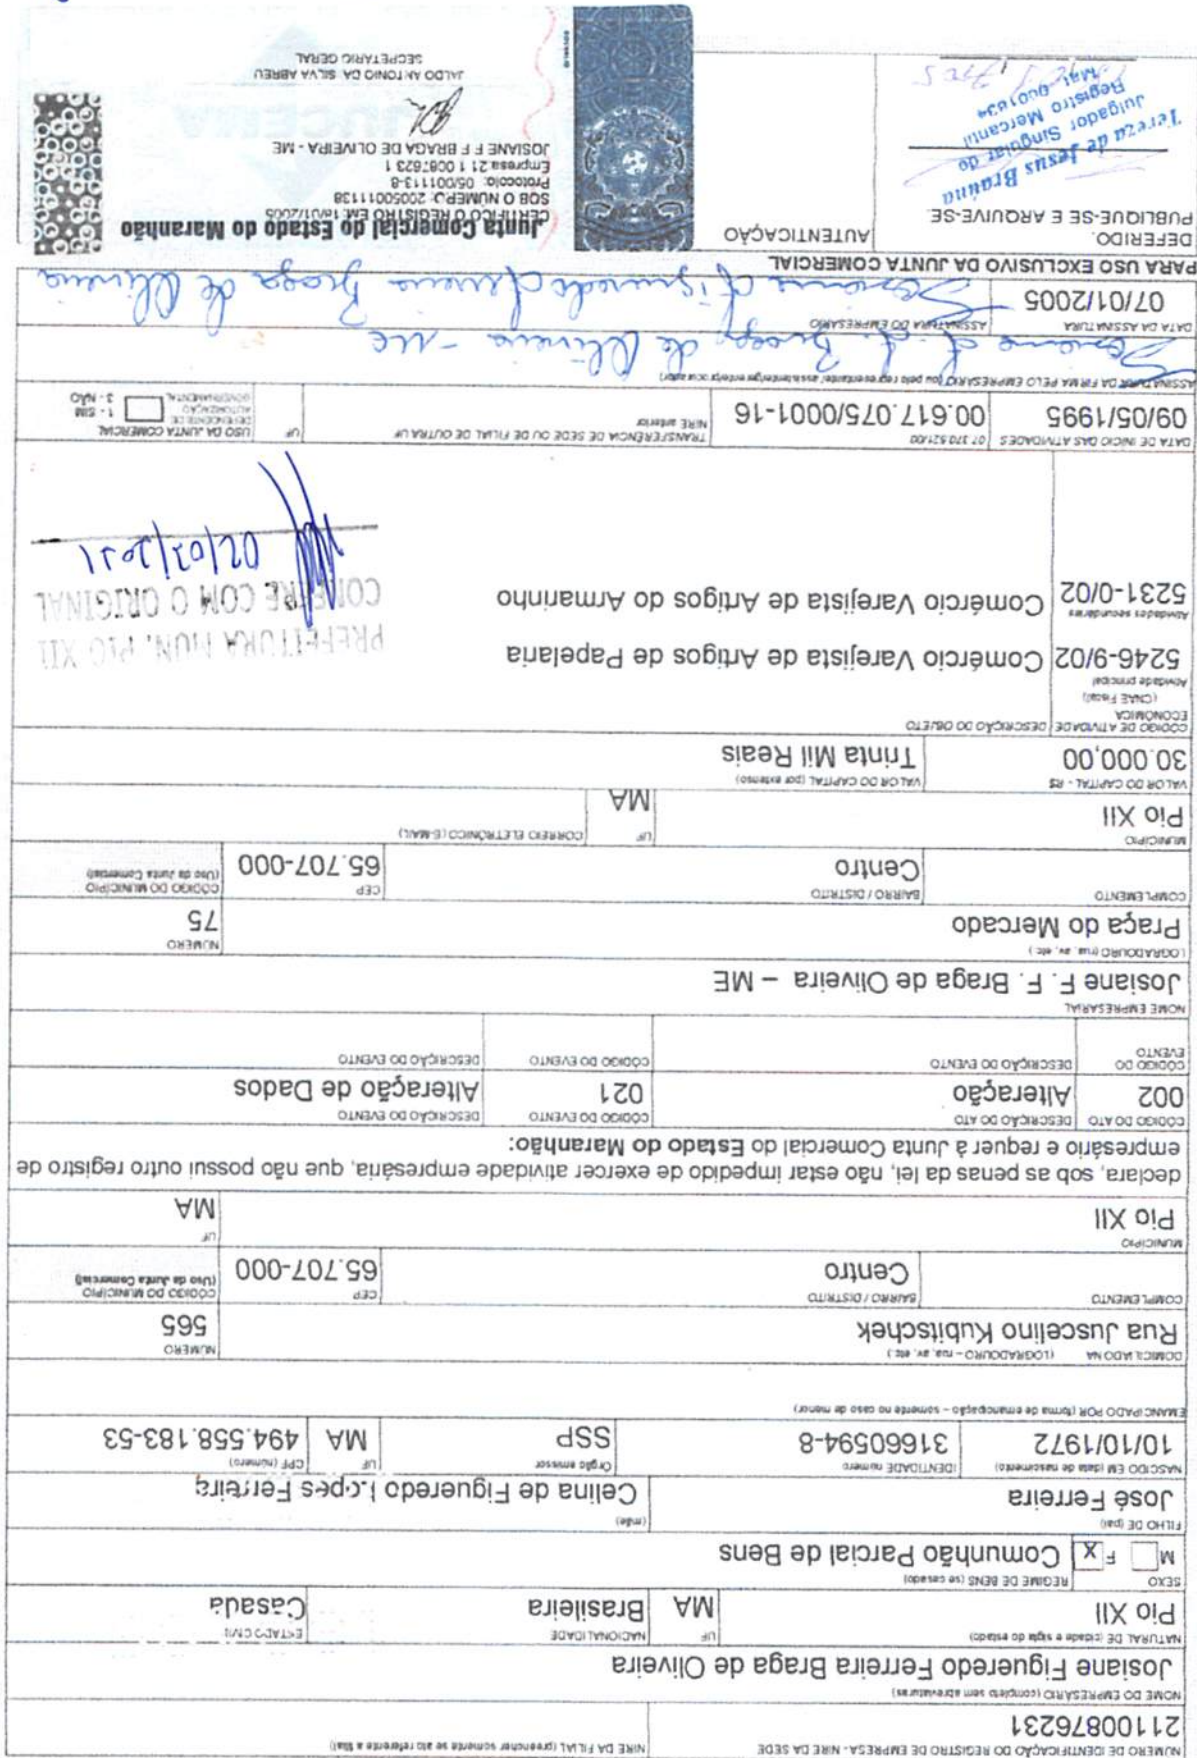 NÚMERO DE IDENTIFICAÇÃO DO REGISTRO DE EMPRESA - NIRE DA SEDE
NIRE DA FILIAL (preencher somente se ato referente a filial)
21100876231
NOME DO EMPRESÁRIO (completo sem abreviaturas)
Josiane Figueredo Ferreira Braga de Oliveira
NATURAL DE (cidade e sigla do estado)
UF
NACIONALIDADE
ESTADO CIVIL
Pio XII
MA
Brasileira
Casada
SEXO
REGIME DE BENS (se casado)
M F X
Comunhão Parcial de Bens
FILHO DE (pai)
(mãe)
José Ferreira
Celina de Figueredo Lopes Ferreira
NASCIDO EM (data de nascimento)
IDENTIDADE número
Orgão emissor
UF
CPF (número)
10/10/1972
31660594-8
SSP
MA
494.558.183-53
EMANCIPADO POR (forma de emancipação – somente no caso de menor)
DOMICILIADO NA (LOGRADOURO – rua, av, etc.)
NÚMERO
Rua Juscelino Kubitschek
565
COMPLEMENTO
BAIRRO / DISTRITO
CEP
CÓDIGO DO MUNICÍPIO
(Uso da Junta Comercial)
Centro
65.707-000
MUNICIPIO
UF
Pio XII
MA
declara, sob as penas da lei, não estar impedido de exercer atividade empresária, que não possui outro registro de
empresário e requer à Junta Comercial do Estado do Maranhão:
CÓDIGO DO ATO
DESCRIÇÃO DO ATO
CÓDIGO DO EVENTO
DESCRIÇÃO DO EVENTO
002
Alteração
021
Alteração de Dados
CÓDIGO DO EVENTO
DESCRIÇÃO DO EVENTO
CÓDIGO DO EVENTO
DESCRIÇÃO DO EVENTO
NOME EMPRESARIAL
Josiane F. F. Braga de Oliveira – ME
LOGRADOURO (rua, av, etc.)
NÚMERO
Praça do Mercado
75
COMPLEMENTO
BAIRRO / DISTRITO
CEP
CÓDIGO DO MUNICÍPIO
(Uso da Junta Comercial)
Centro
65.707-000
MUNICIPIO
UF
CORREIO ELETRÔNICO (E-MAIL)
Pio XII
MA
VALOR DO CAPITAL - R$
VALOR DO CAPITAL (por extenso)
30.000,00
Trinta Mil Reais
CÓDIGO DE ATIVIDADE ECONÔMICA
(CNAE Fiscal)
DESCRIÇÃO DO OBJETO
Atividade principal
5246-9/02
Comércio Varejista de Artigos de Papelaria
Atividades secundárias
5231-0/02
Comércio Varejista de Artigos do Armarinho
PREFEITURA MUN. PIO XII
CONFERE COM O ORIGINAL
02/02/2021
DATA DE INÍCIO DAS ATIVIDADES
07.370.521/00
TRANSFERÊNCIA DE SEDE OU DE FILIAL DE OUTRA UF
NIRE anterior
UF
USO DA JUNTA COMERCIAL
DEPENDENTE DE
AUTORIZAÇÃO
GOVERNAMENTAL
1 - SIM
3 - NÃO
09/05/1995
00.617.075/0001-16
ASSINATURA DA FIRMA PELO EMPRESÁRIO (ou pelo representante/assistente/gerente/procurador)
Josiane F. F. Braga de Oliveira - ME
DATA DA ASSINATURA
ASSINATURA DO EMPRESÁRIO
07/01/2005
Josiane Figueredo Ferreira Braga de Oliveira
PARA USO EXCLUSIVO DA JUNTA COMERCIAL
DEFERIDO.
PUBLIQUE-SE E ARQUIVE-SE.
AUTENTICAÇÃO
Tereza de Jesus Braúna
Julgador Singular do
Registro Mercantil
Mat. 0001834
Junta Comercial do Estado do Maranhão
CERTIFICO O REGISTRO EM: 18/01/2005
SOB O NÚMERO: 20050011138
Protocolo: 05/001113-8
Empresa: 21 1 0087623 1
JOSIANE F F BRAGA DE OLIVEIRA - ME
JALDO ANTONIO DA SILVA ABREU
SECRETARIO GERAL